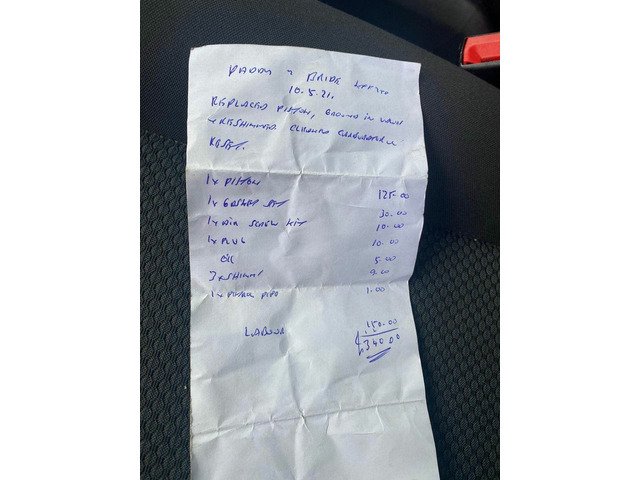 PADDY BRIDE
10.5.21.
REPLACED PISTON, GROUND IN
+ RESHIMMED CLEANED CARBURETOR
RESET.
1 x PISTON 125.00
1 x GASKET SET 30.00
1 x AIR SCREW KIT 10.00
1 x PLUG 10.00
OIL 5.00
3 x SHIMS 9.00
1 x PIPE 1.00
LABOUR 150.00
£340.00